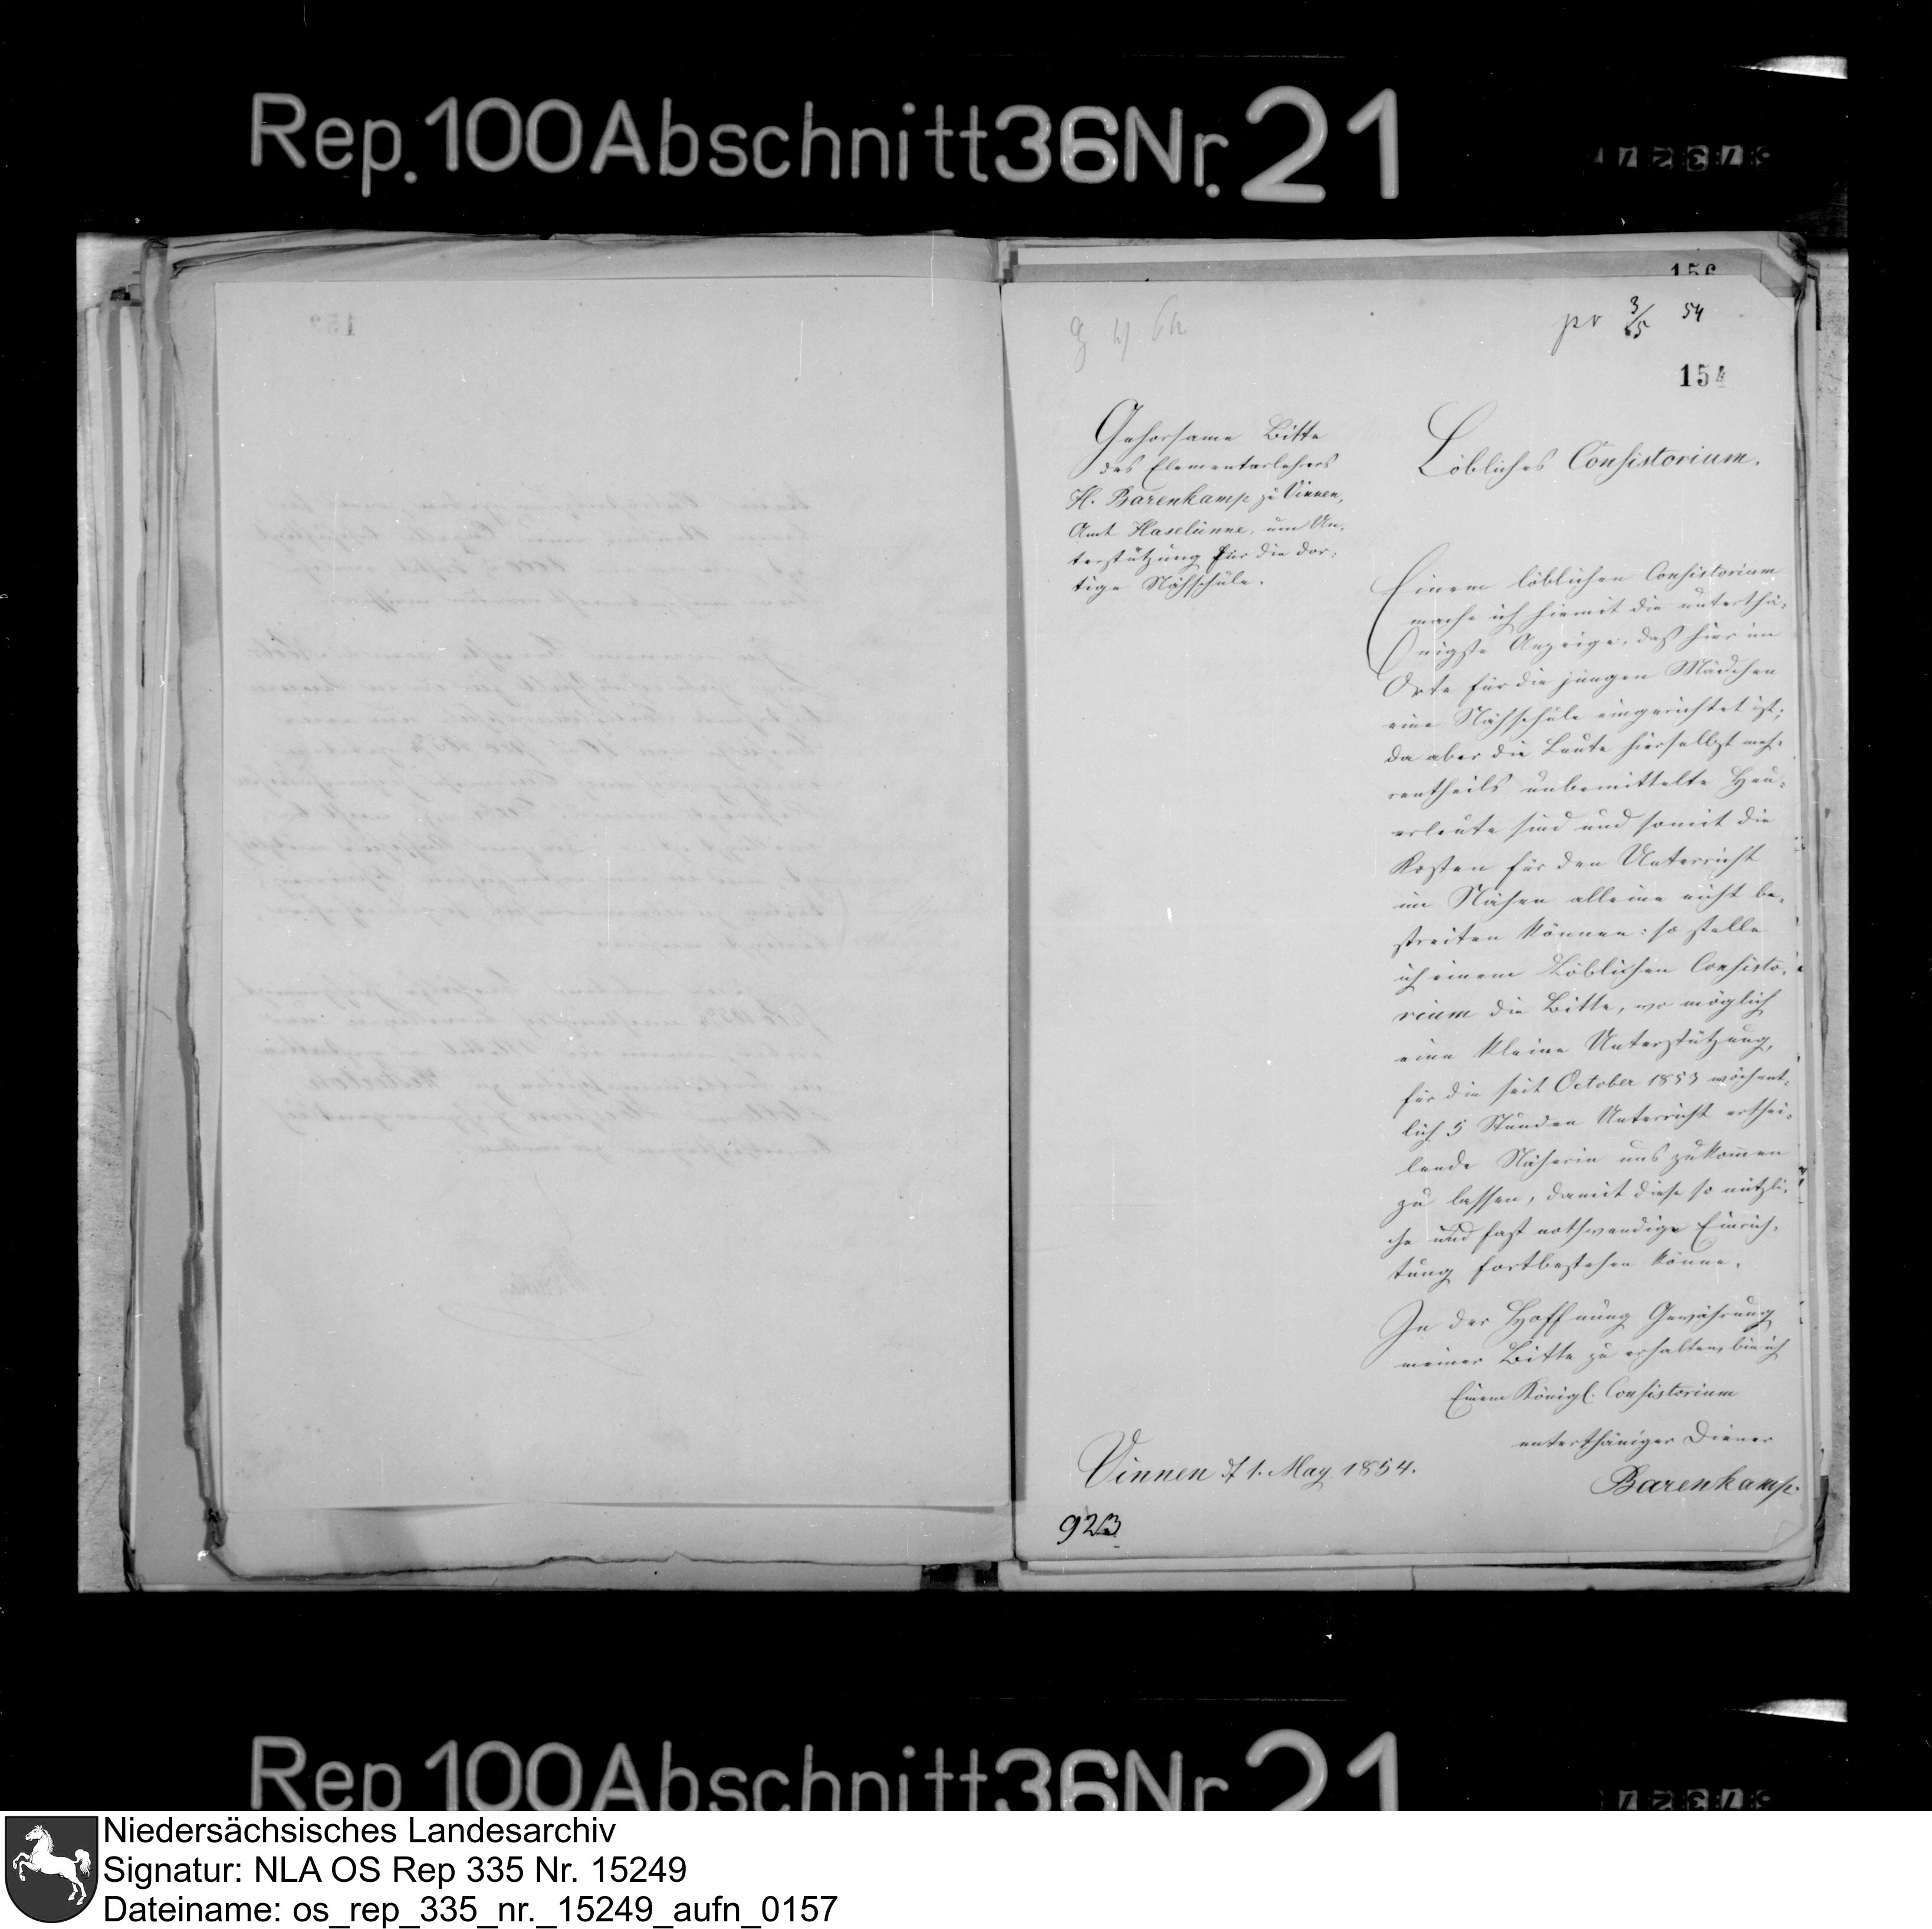 Rep. 100 Abschnitt 36 Nr. 21
156
pr 3/5 54
154
Gehorsame Bitte
des Elementarlehrers
H. Barenkamp zu Vinnen,
Amt Haselünne, um Un-
terstützung für die dor-
tige Nähschule.
Löbliches Consistorium.
Einem löblichen Consistorium
mache ich hiemit die unterthä-
nigste Anzeige, daß hier im
Orte für die jungen Mädchen
eine Nähschule eingerichtet ist;
da aber die Leute hierselbst meh-
rentheils unbemittelte Heu-
erleute sind und somit die
Kosten für den Unterricht
im Nähen alleine nicht be-
streiten können: so stelle
ich einem Löblichen Consisto-
rium die Bitte, wo möglich
eine kleine Unterstützung,
für die seit October 1853 wöchent-
lich 5 Stunden Unterricht erthei-
lende Näherin uns zukommen
zu lassen, damit diese so nützli-
che und fast nothwendige Einrich-
tung fortbestehen könne.
In der Hoffnung Gewährung
meiner Bitte zu erhalten, bin ich
Einem Königl. Consistorium
unterthäniger Diener
Barenkamp.
Vinnen d 1. May 1854.
923
Rep 100 Abschnitt 36 Nr 21
Niedersächsisches Landesarchiv
Signatur: NLA OS Rep 335 Nr. 15249
Dateiname: os_rep_335_nr._15249_aufn_0157